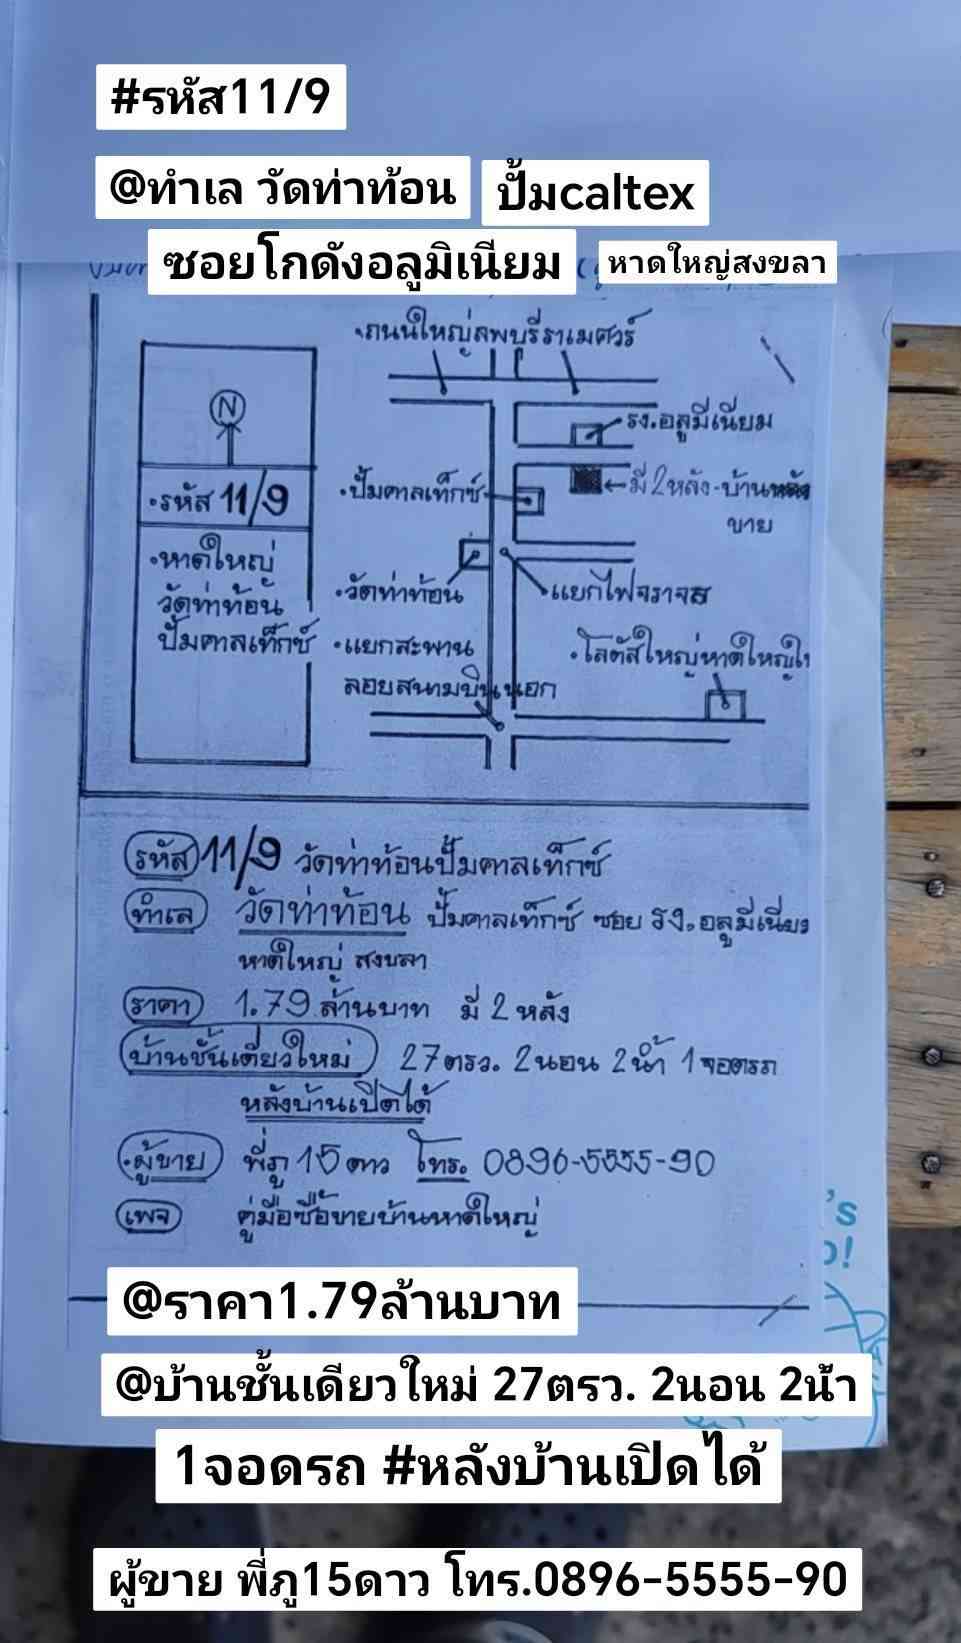 #รหัส11/9
@ทำเล วัดท่าท้อน ปั้มcaltex
ซอยโกดังอลูมิเนียม หาดใหญ่สงขลา
•ถนนใหญ่ลพบุรีราเมศวร์
N
รง.อลูมีเนียม
•รหัส 11/9
•ปั้มคาลเท็กซ์
←มี 2หลัง-บ้าน
ขาย
•หาดใหญ่
วัดท่าท้อน
ปั้มคาลเท็กซ์
•วัดท่าท้อน
แยกไฟจราจร
•แยกสะพาน
ลอยสนามบินนอก
•โลตัสใหญ่หาดใหญ่ใ
รหัส 11/9 วัดท่าท้อนปั้มคาลเท็กซ์
ทำเล วัดท่าท้อน ปั้มคาลเท็กซ์ ซอย รง.อลูมีเนียม
หาดใหญ่ สงขลา
ราคา 1.79 ล้านบาท มี 2 หลัง
บ้านชั้นเดียวใหม่ 27ตรว. 2นอน 2น้ำ 1จอดรถ
หลังบ้านเปิดได้
•ผู้ขาย พี่ภู 15ดาว โทร. 0896-5555-90
เพจ คู่มือซื้อขายบ้านหาดใหญ่
's
o!
@ราคา1.79ล้านบาท
@บ้านชั้นเดียวใหม่ 27ตรว. 2นอน 2น้ำ
1จอดรถ #หลังบ้านเปิดได้
ผู้ขาย พี่ภู15ดาว โทร.0896-5555-90